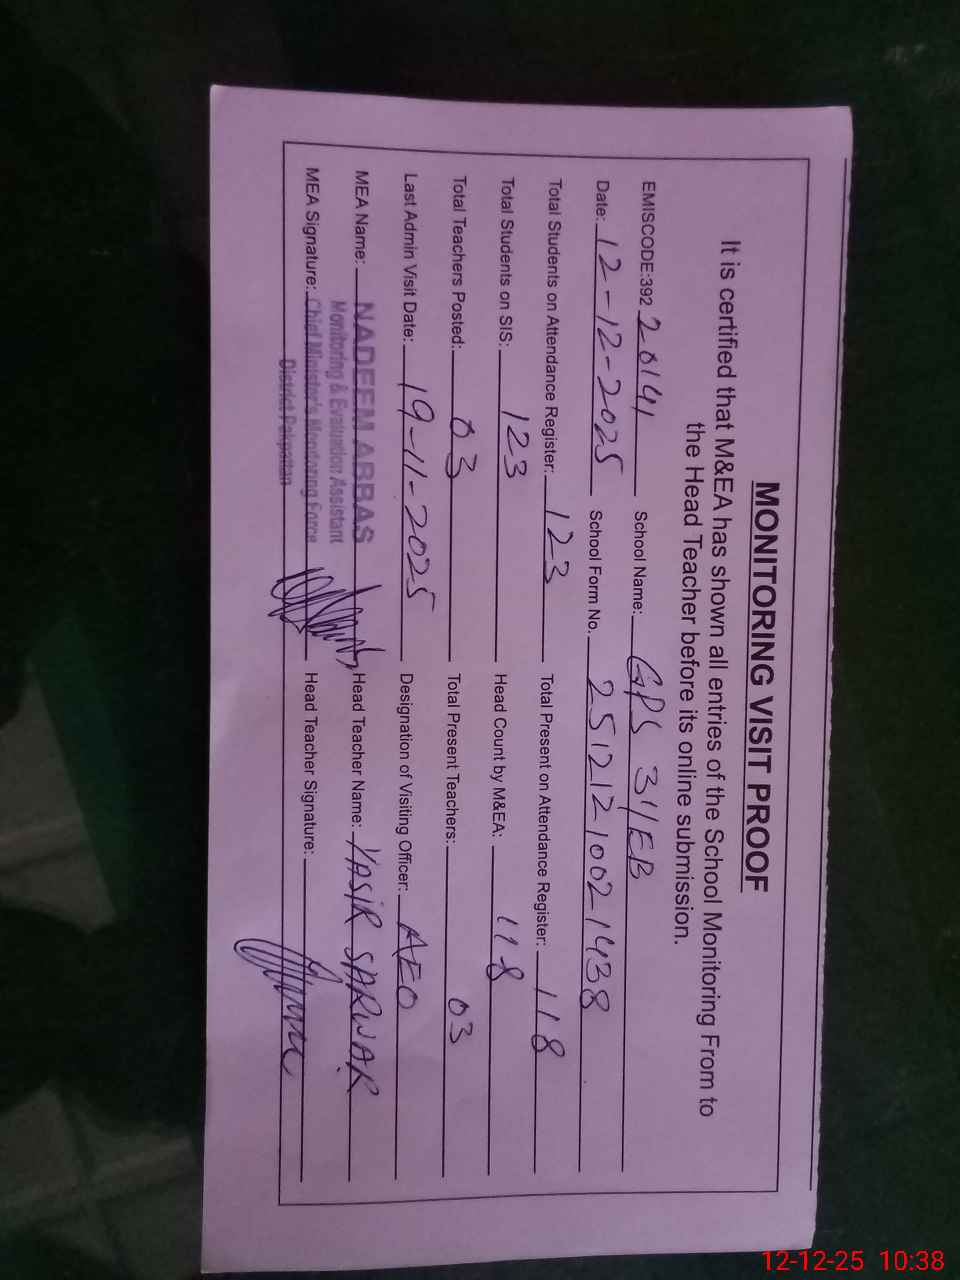 MONITORING VISIT PROOF
It is certified that M&EA has shown all entries of the School Monitoring From to
the Head Teacher before its online submission.
EMISCODE:392 20141 School Name: GPS 31/EB
Date: 12-12-2025 School Form No. 2512121002 1438
Total Students on Attendance Register: 123 Total Present on Attendance Register: 118
Total Students on SIS: 123 Head Count by M&EA: 118
Total Teachers Posted: 03 Total Present Teachers: 03
Last Admin Visit Date: 19-11-2025 Designation of Visiting Officer: AEO
MEA Name: NADEEM ABBAS Head Teacher Name: YASIR SARWAR
Monitoring & Evaluation Assistant
MEA Signature: Chief Minister's Monitoring Force Head Teacher Signature:
District Pakpattan
12-12-25 10:38